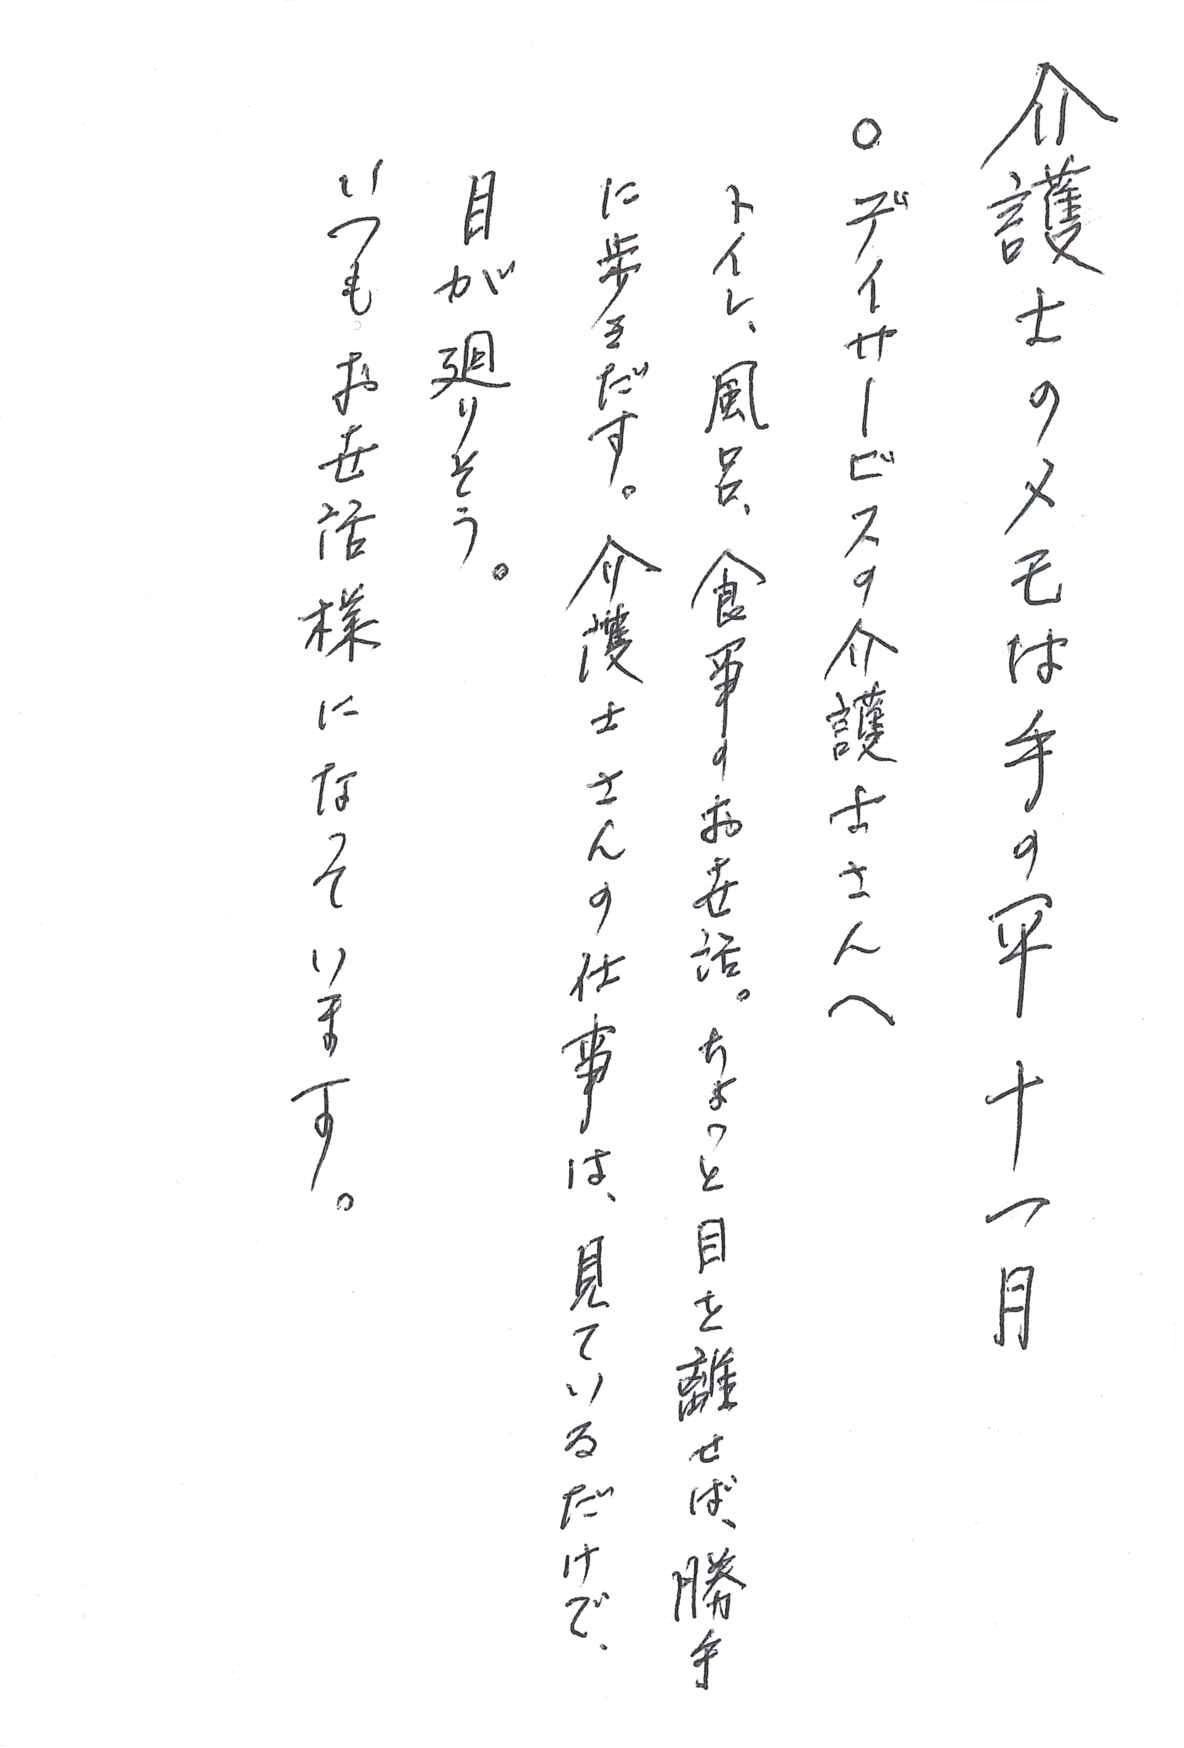 介護士のメモは手の平十一月
○デイサービスの介護士さんへ
トイレ、風呂、食事のお世話。ちょっと目を離せば、勝手
に歩きだす。介護士さんの仕事は、見ているだけで、
目が廻りそう。
いつもお世話様になっています。